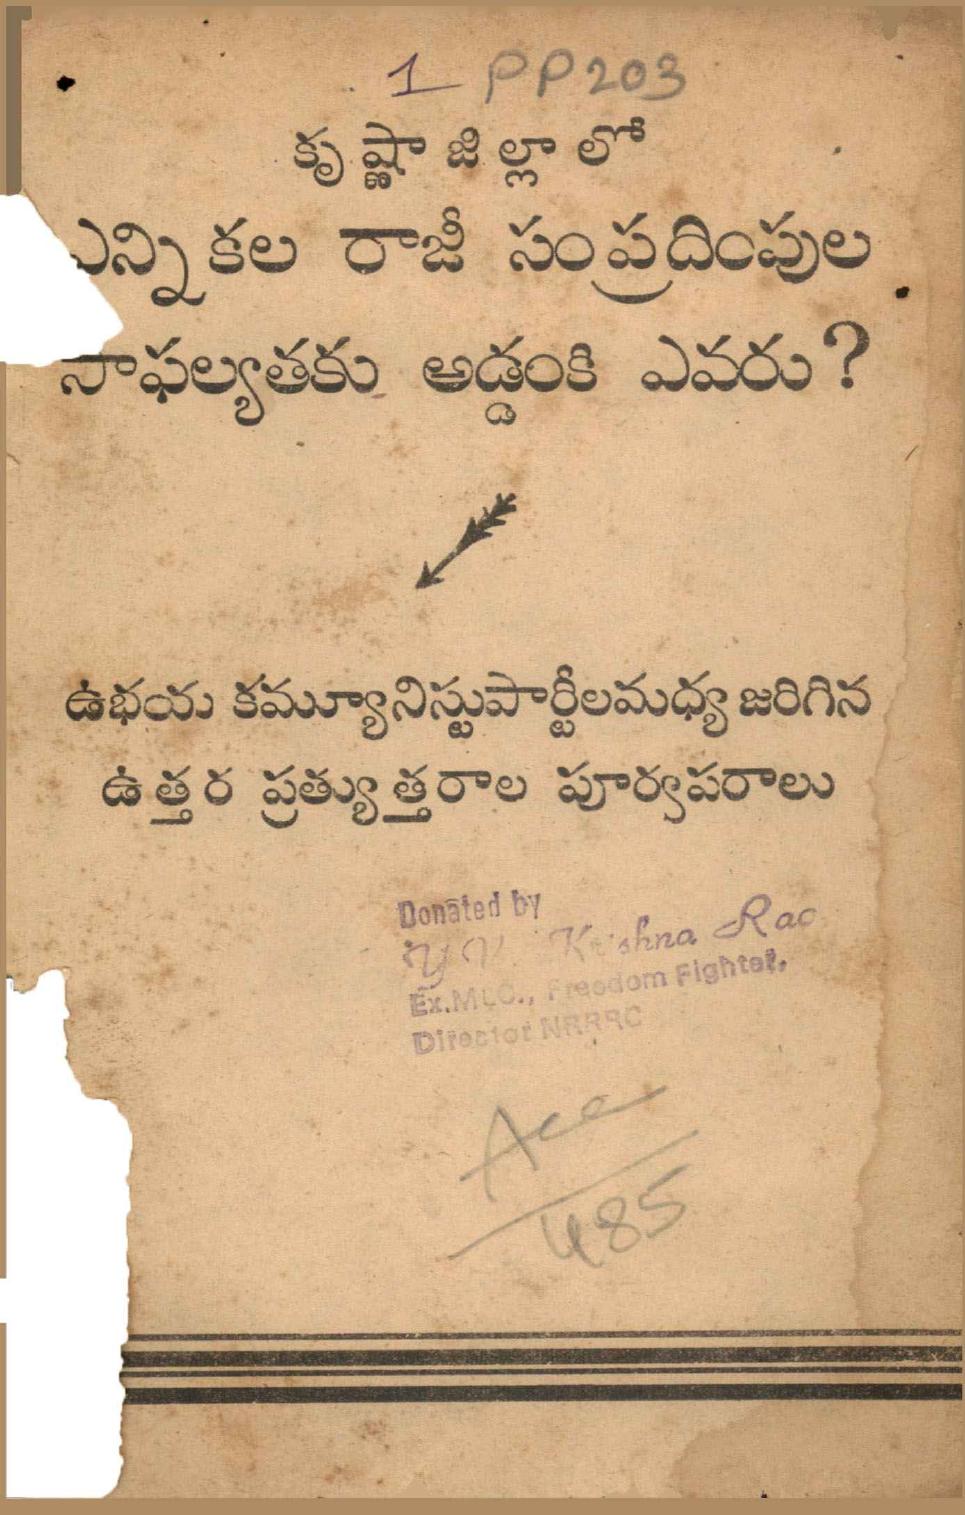 1 PP203
కృష్ణాజిల్లాలో
ఎన్నికల రాజీ సంప్రదింపుల
సాఫల్యతకు అడ్డంకి ఎవరు?
ఉభయ కమ్యూనిస్టుపార్టీలమధ్య జరిగిన
ఉత్తర ప్రత్యుత్తరాల పూర్వపరాలు
Donated by
Y V Krishna Rao
Ex.MLC., Freedom Fighter,
Director NRRRC
Acc
485